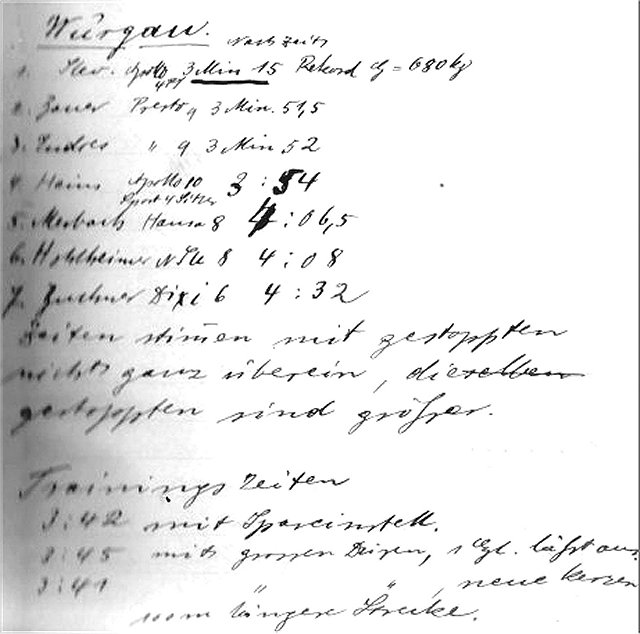 Würgau.
Nach Zeits
1. Slev. Apollo 3 Min 15 Rekord G = 680 kg
4 PS
2. Zauer Presto 9 3 Min. 51,5
3. Endres " 9 3 Min 52
4. Hains Apollo 10 3 : 54
Sport 4 Sitzer
5. Merbach Hansa 8 4 : 06,5
6. Hohlheimer NSU 8 4 : 08
7. Buchner Dixi 6 4 : 32
Zeiten stimen mit gestoppten
nichts ganz überein, dieselben
gestoppten sind größer.
Trainings Zeiten
3 : 42 mit Spareinstell.
3 : 45 mit grossen Düsen, lässt aus.
3 : 41 " " , neue Kerzen
vom längere Strecke.